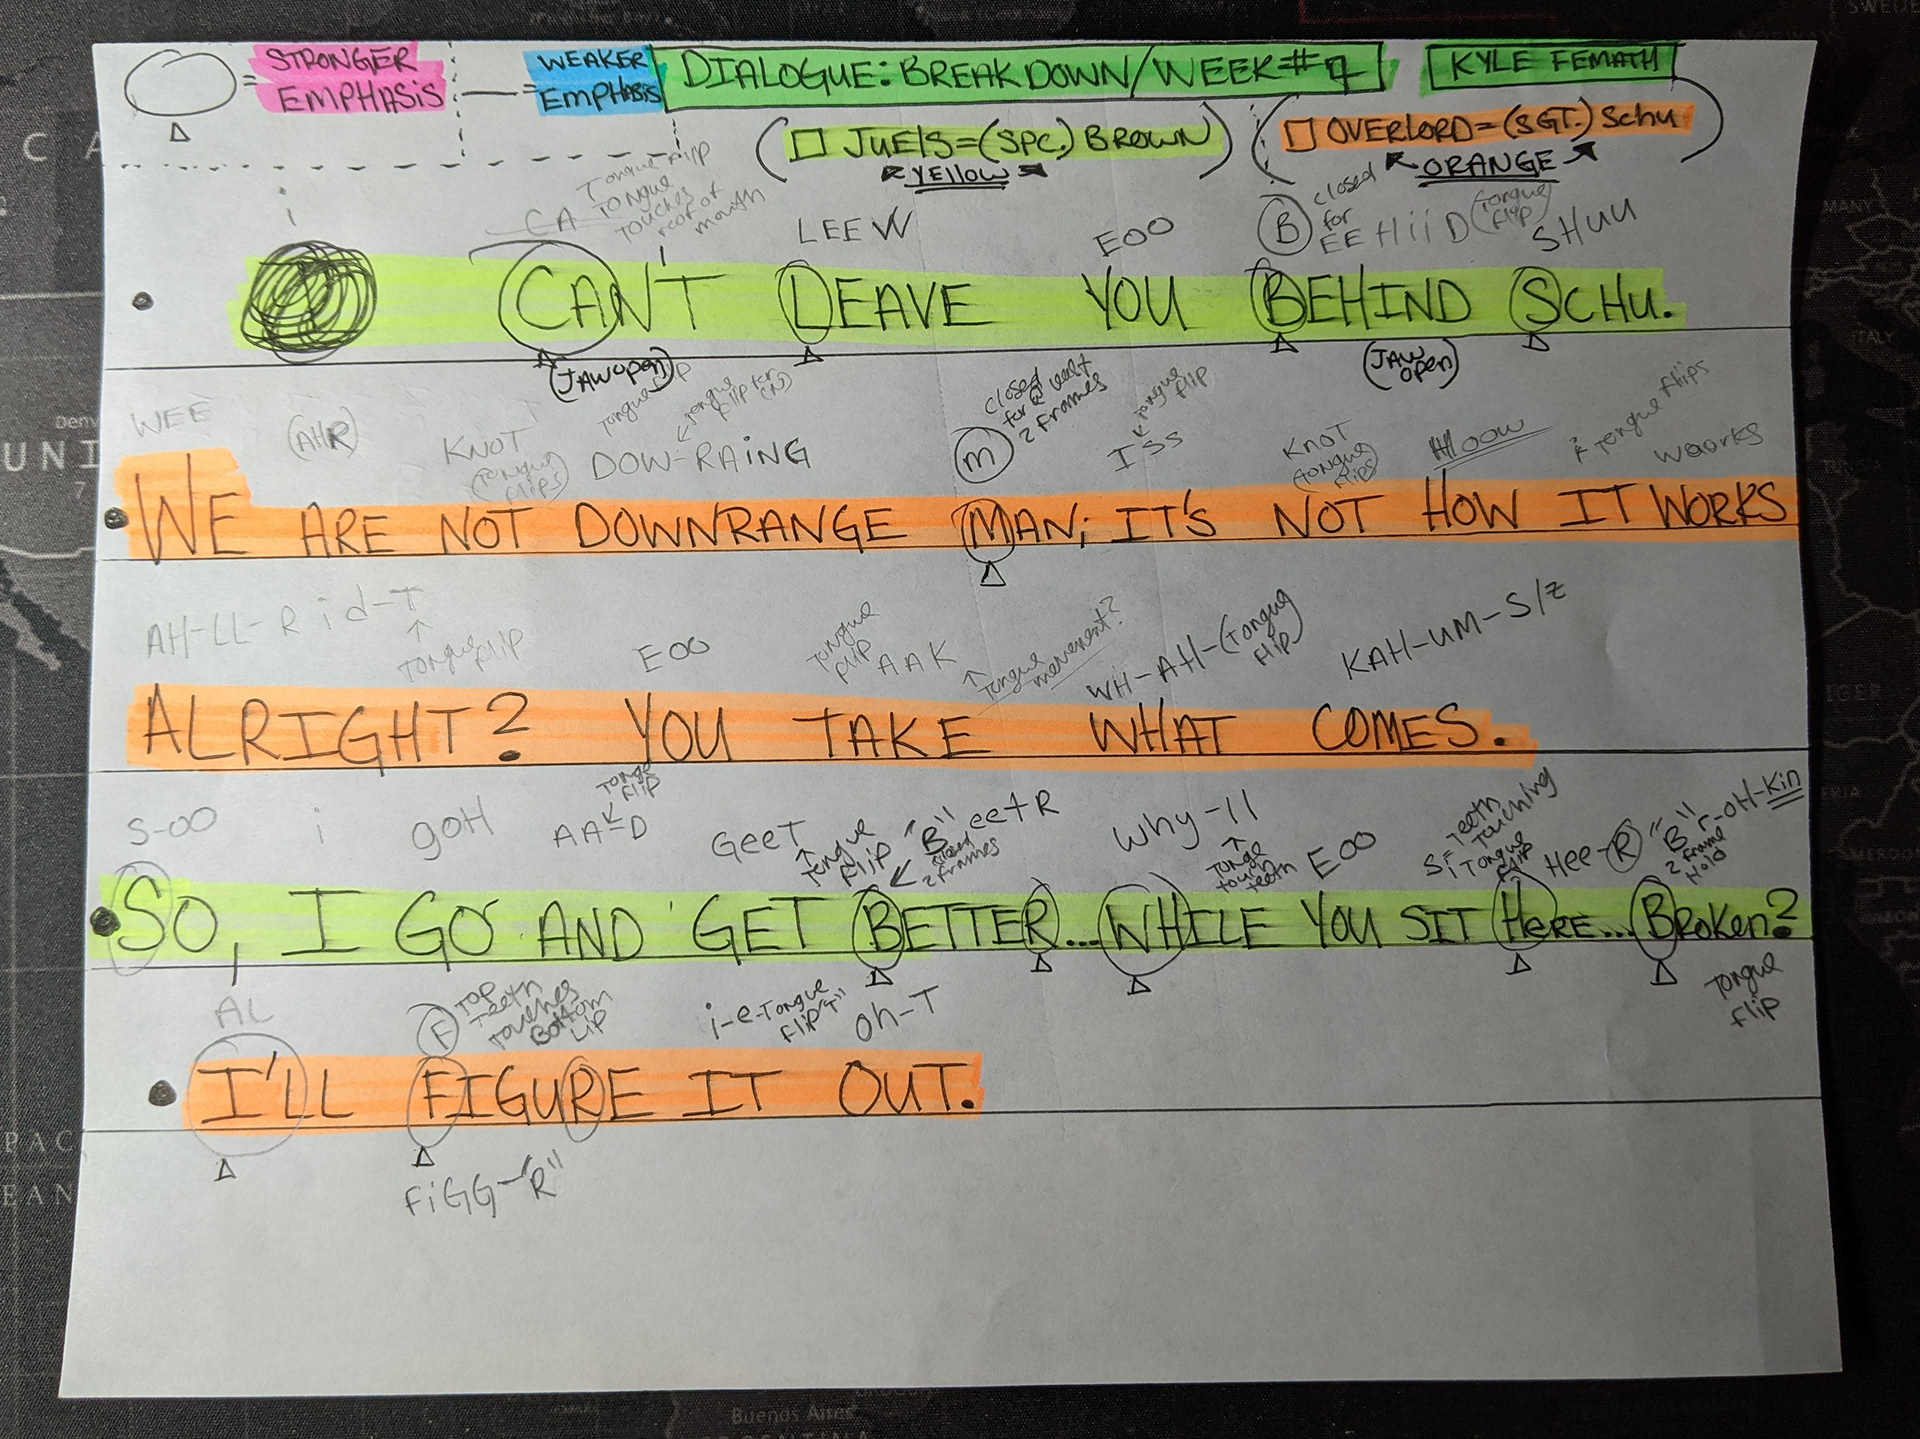 = STRONGER EMPHASIS
= WEAKER EMPHASIS
DIALOGUE: BREAKDOWN/WEEK #7
KYLE FEMATH
(□ JUElS = (SPC.) BROWN)
YELLOW
(□ OVERLORD = (SGT.) SCHU)
ORANGE
i
CA
Tongue flip
TONGUE touches roof of mouth
LEEW
EOO
B closed for
EEHiiD (Tongue flip)
SHUU
CAN'T LEAVE YOU BEHIND SCHU.
(JAW open)
(JAW open)
WEE
(AHR)
KNOT (Tongue flips)
Tongue flip
DOW-RAiNG
Tongue flip for (N)
m closed for 2 frames
ISS
Tongue flip
KNOT (Tongue flips)
HOOW
Tongue flips
waorks
WE ARE NOT DOWNRANGE MAN; IT'S NOT HOW IT WORKS
AH-LL-R i d-T
Tongue flip
EOO
Tongue flip
AAK
Tongue movement?
WH-AH-(Tongue flip)
KAH-UM-S/z
ALRIGHT? YOU TAKE WHAT COMES.
S-OO
i
gOH
AA-D
Tongue flip
GeeT
Tongue flip
"B" eetR
closed 2 frames
Why-ll
Tonge touch teeth
EOO
S= Teeth Touching
i Tongue flip
Hee-R
"B" r-oH-Kin
2 frame hold
SO, I GO AND GET BETTER... WHILE YOU SIT HERE... BROKEN?
Tongue flip
AL
F TOP Teeth Touches Bottom Lip
i-e-Tongue flip "T"
Oh-T
I'LL FIGURE IT OUT.
FiGG-"R"